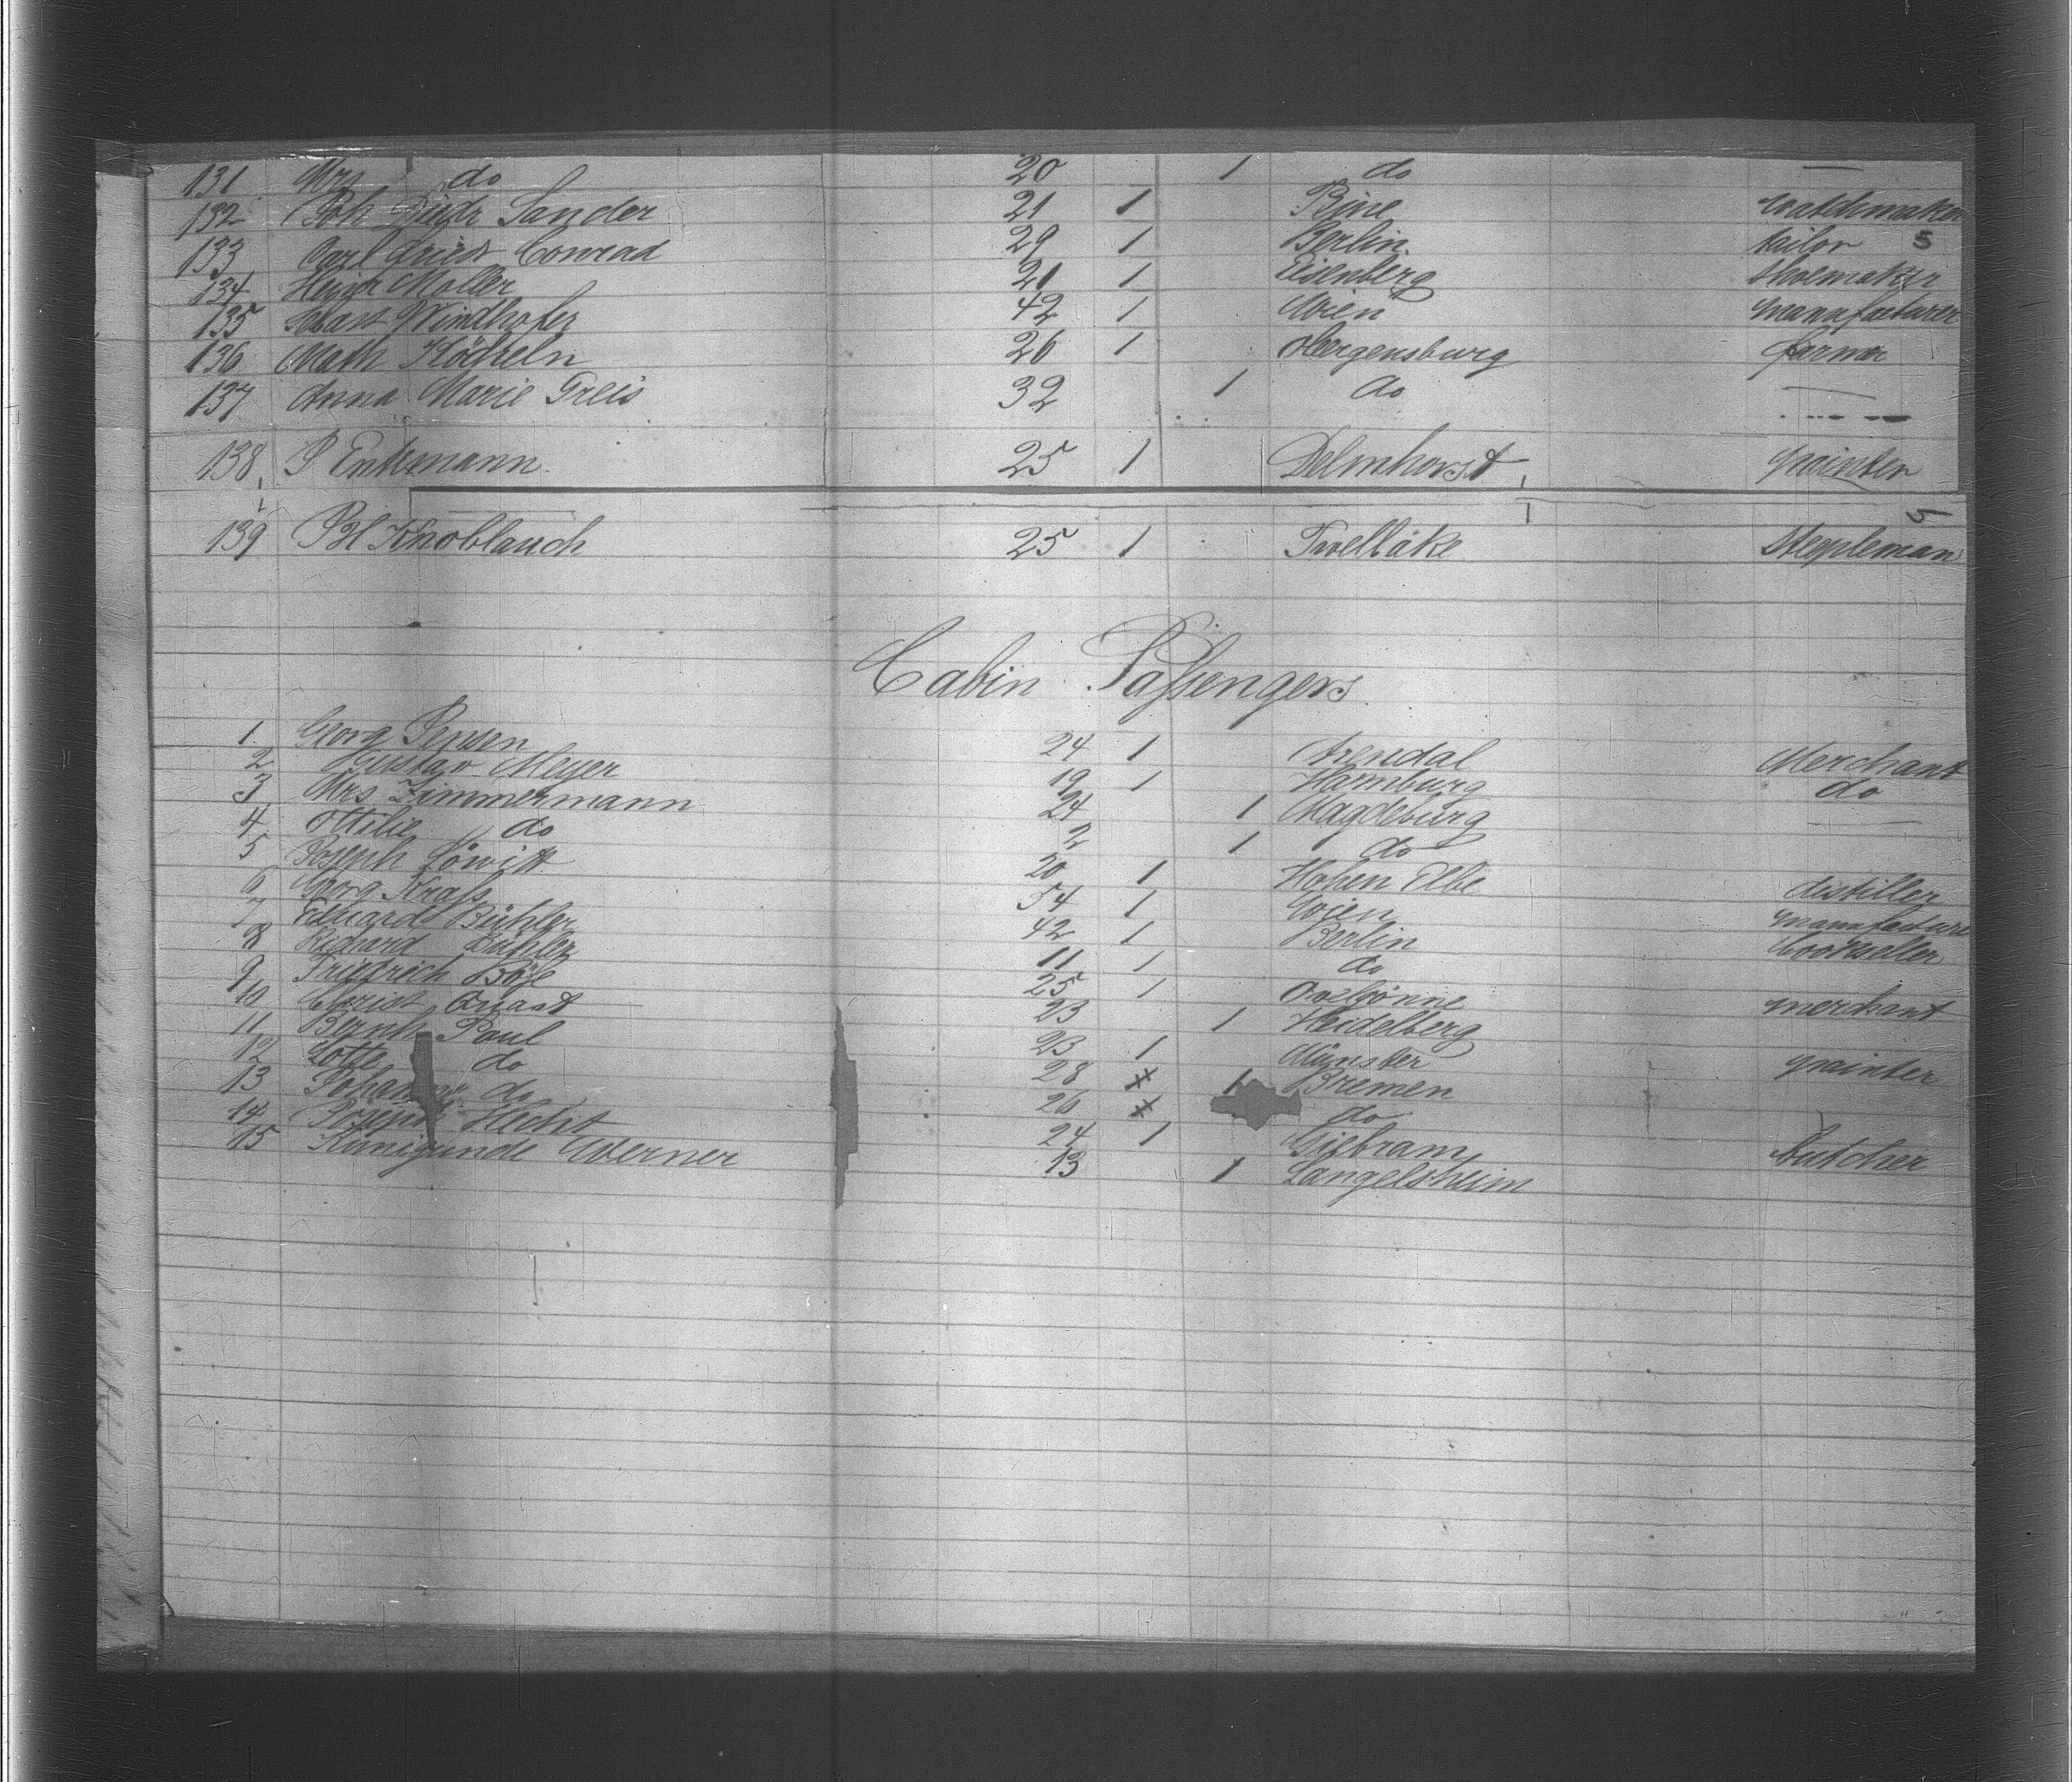 131 Mrs do 20 1 do —
132 Joh Diedr Sander 21 1 Pine watchmaker
133 Carl Fried Conrad 29 1 Berlin tailor 5
134 Heinr Moller 21 1 Eisenberg shoemaker
135 Sebast Windhofer 42 1 Wien manufacturer
136 Math 26 1 Obergensburg farmer
137 Anna Marie Greis 32 1 do —
138 P Entemann 25 1 Delmhorst painter
139 Knoblauch 25 1 Twelbäke Steepleman
Cabin Passengers
1 Georg Jensen 24 1 Arendal Merchant
2 Gustav Meyer 19 1 Hamburg do
3 Mrs Zimmermann 24 1 Magdeburg —
4 Ottilie do 2 1 do
5 Joseph Löwitt 20 1 Hohen Elbe distiller
6 Georg Krass 54 1 Wien manufacture
7 Eduard Bühler 42 1 Berlin bookseller
8 Richard Bühler 11 1 do
9 Friedrich Böse 25 1 Ovelgönne merchant
10 Christ Quast 23 1 Heidelberg
11 Bernh Paul 23 1 Münster painter
12 Lotte do 28 1 Bremen
13 Johanne do 26 do
14 Joseph Hecht 24 1 butcher
15 Kunigunde Werner 13 1 Langelsheim